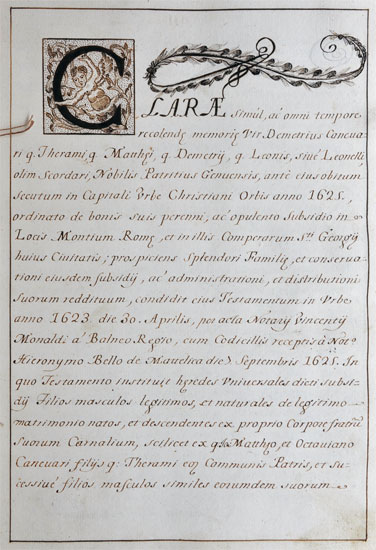 CLARÆ Simùl, ac omni tempore
recolendę memorię Vir Demetrius Caneua-
ri q. Therami, q. Matthęi, q. Demetrij, q. Leonis, siuè Leonelli
olim Scordari, Nobilis Patritius Genuensis, antè eius obitum
secutum in Capitali Vrbe Christiani Orbis anno 1625.
ordinato de bonis suis perenni, ac opulento Subsidio in
Locis Montium Romę, et in illis Comperarum Sti. Georgij
huius Ciuitatis; prospiciens Splendori Familię, et conserua-
tioni eiusdem subsidij, ac administrationi, et distributioni
Suorum reddituum, condidit eius Testamentum in Vrbe
anno 1623 die 30. Aprilis, per acta Notarij Vincentij
Monaldi a Balneo Regio, cum Codicillis receptis à Noto.
Hieronymo Bello de Matelica die Septembris 1625. In
quo Testamento instituit hęredes Vniuersales dicti subsi-
dij Filios masculos legitimos, et naturales de legitimo
matrimonio natos, et descendentes ex proprio Corpore fratrū
Suorum Carnalium, scilicet ex Matthęo, et Octauiano
Caneuari, filijs q: Therami Communis Patris, et su-
cessiuè filios masculos similes eorumdem suorum